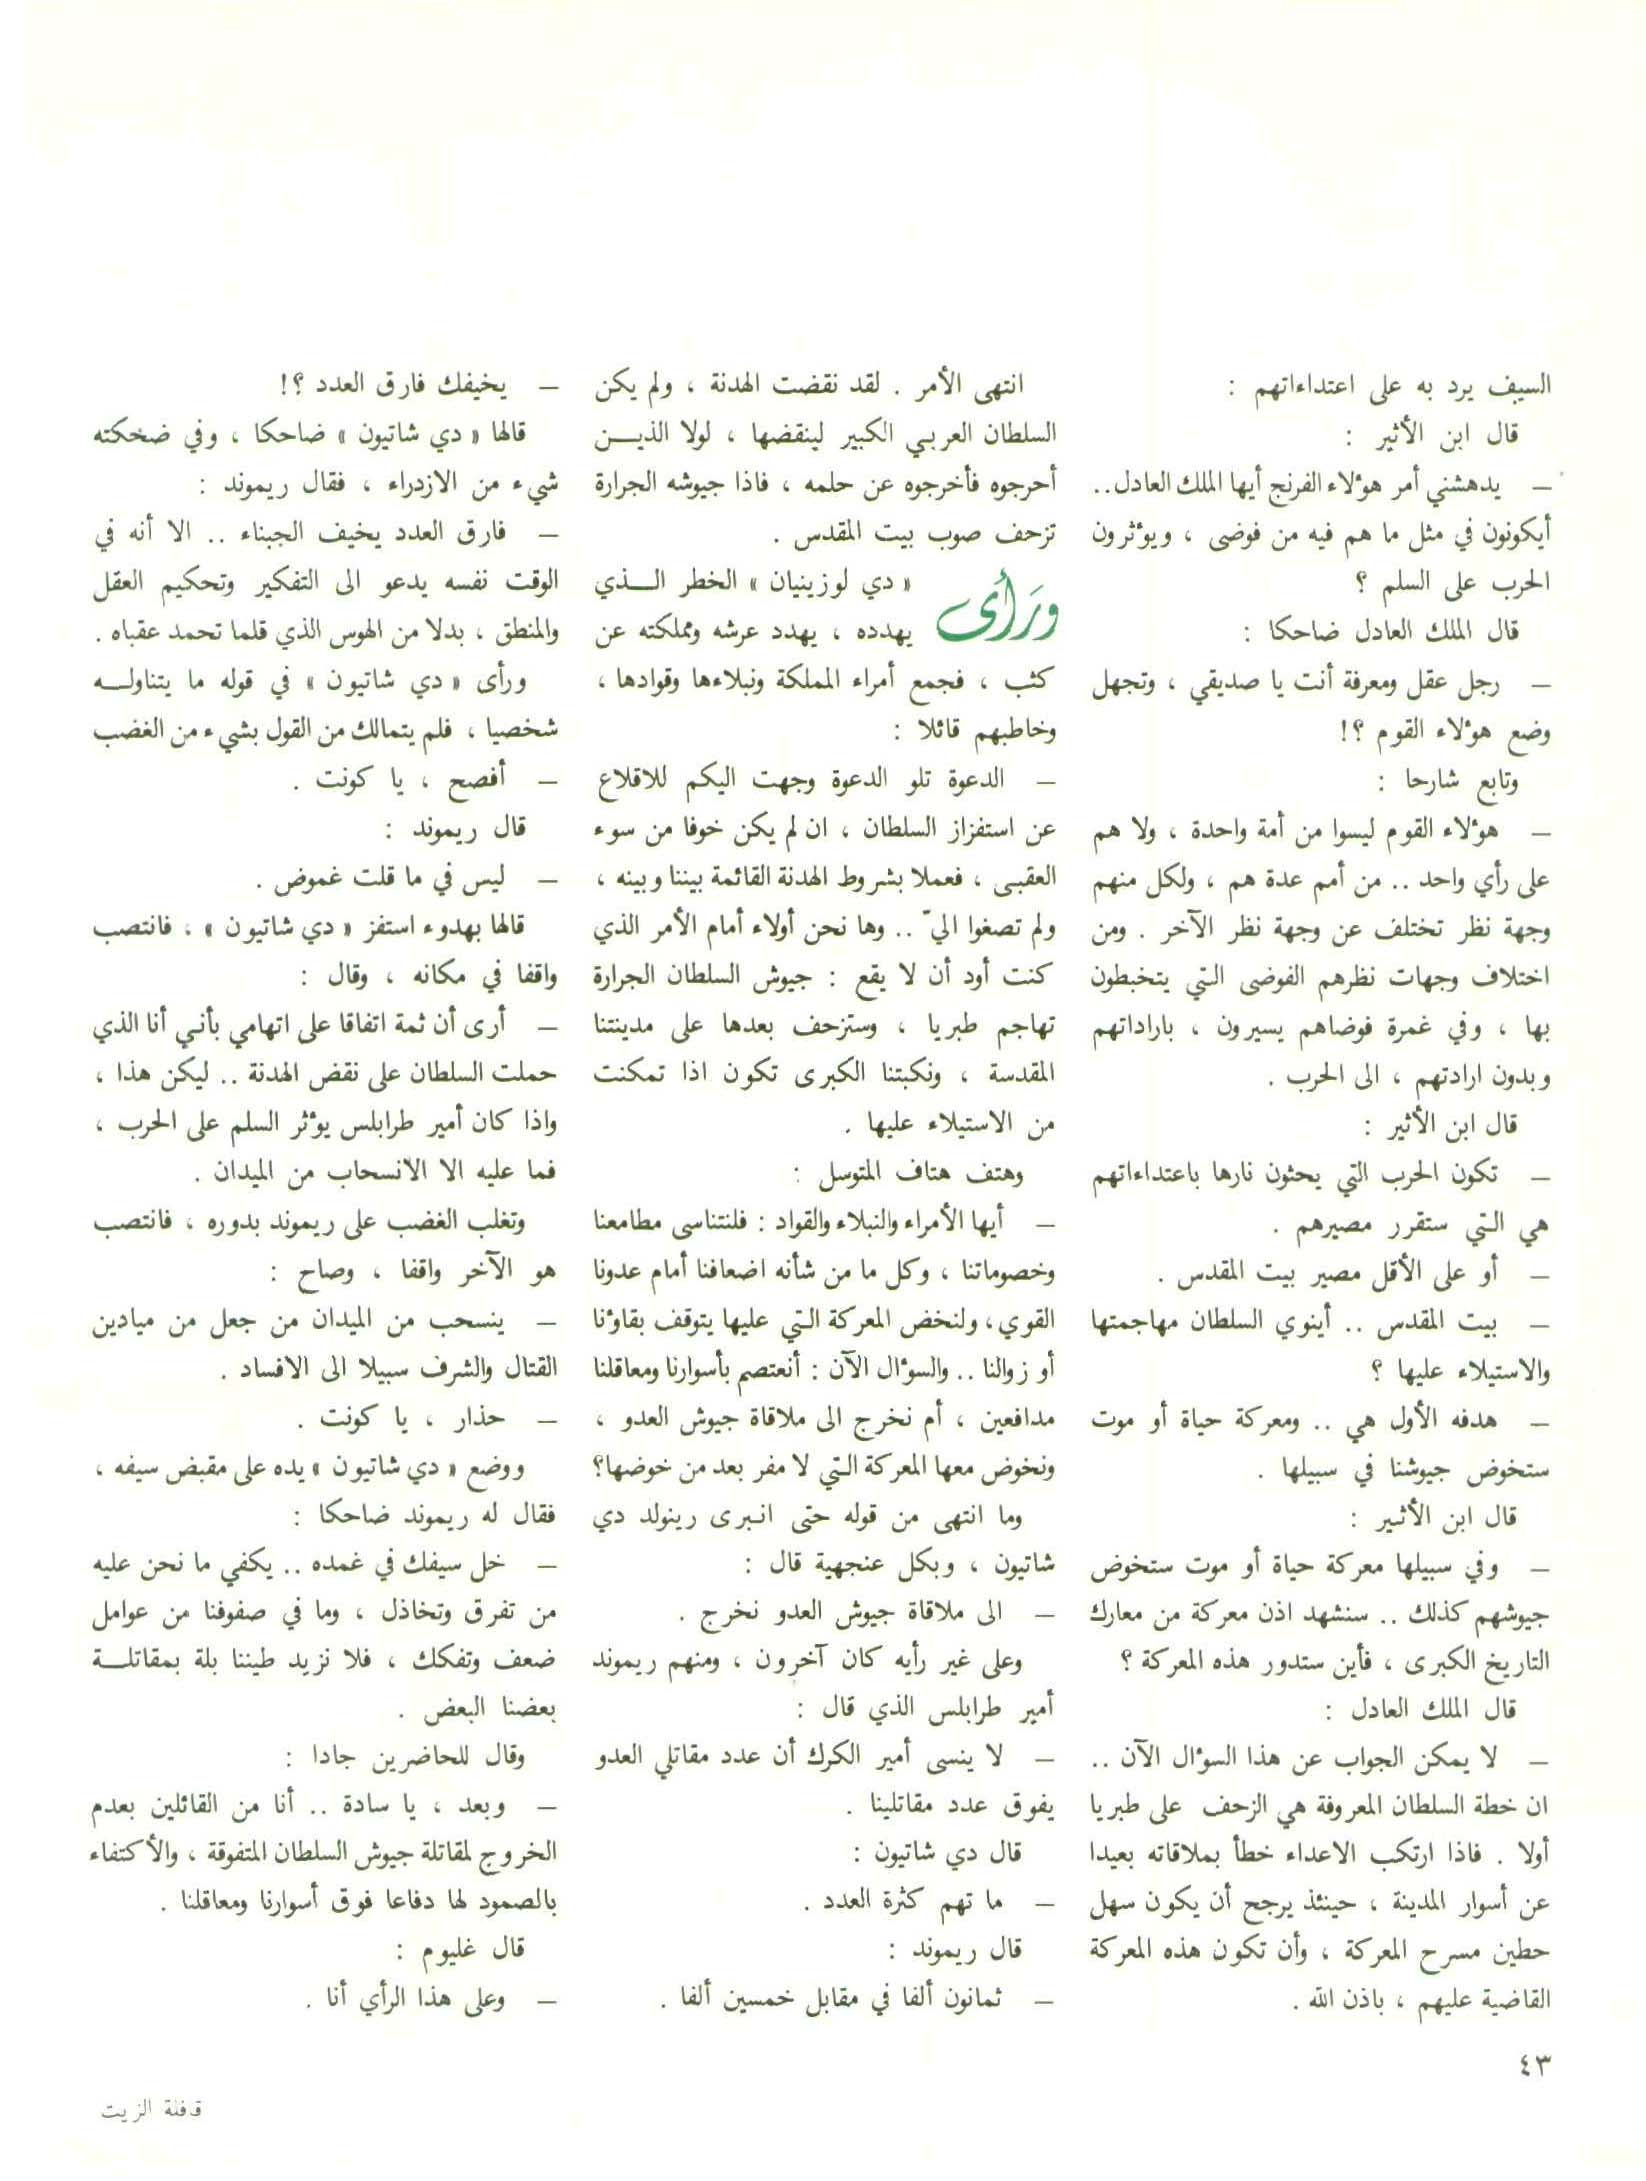 السيف يرد به على اعتداءاتهم :
قال ابن الأثير :
— يدهشني أمر هؤلاء الفرنج أيها الملك العادل..
أيكونون في مثل ما هم فيه من فوضى ، ويؤثرون
الحرب على السلم ؟
قال الملك العادل ضاحكا :
— رجل عقل ومعرفة أنت يا صديقي ، وتجهل
وضع هؤلاء القوم ؟!
وتابع شارحا :
— هؤلاء القوم ليسوا من أمة واحدة ، ولا هم
على رأي واحد .. من أمم عدة هم ، ولكل منهم
وجهة نظر تختلف عن وجهة نظر الآخر . ومن
اختلاف وجهات نظرهم الفوضى التي يتخبطون
بها ، وفي غمرة فوضاهم يسيرون ، باراداتهم
وبدون ارادتهم ، الى الحرب .
قال ابن الأثير :
— تكون الحرب التي يحثون نارها باعتداءاتهم
هي التي ستقرر مصيرهم .
— أو على الأقل مصير بيت المقدس .
— بيت المقدس .. أينوي السلطان مهاجمتها
والاستيلاء عليها ؟
— هدفه الأول هي .. ومعركة حياة أو موت
ستخوض جيوشنا في سبيلها .
قال ابن الأثير :
— وفي سبيلها معركة حياة أو موت ستخوض
جيوشهم كذلك .. سنشهد اذن معركة من معارك
التاريخ الكبرى ، فأين ستدور هذه المعركة ؟
قال الملك العادل :
— لا يمكن الجواب عن هذا السؤال الآن ..
ان خطة السلطان المعروفة هي الزحف على طبريا
أولا . فاذا ارتكب الاعداء خطأ بملاقاته بعيدا
عن أسوار المدينة ، حينئذ يرجح أن يكون سهل
حطين مسرح المعركة ، وأن تكون هذه المعركة
القاضية عليهم ، باذن الله .
انتهى الأمر . لقد نقضت الهدنة ، ولم يكن
السلطان العربي الكبير لينقضها ، لولا الذيـن
أحرجوه فأخرجوه عن حلمه ، فاذا جيوشه الجرارة
تزحف صوب بيت المقدس .
ورأى « دي لوزينيان » الخطر الـذي
يهدده ، يهدد عرشه ومملكته عن
كثب ، فجمع أمراء المملكة ونبلاءها وقوادها ،
وخاطبهم قائلا :
— الدعوة تلو الدعوة وجهت اليكم للاقلاع
عن استفزاز السلطان ، ان لم يكن خوفا من سوء
العقبى ، فعملا بشروط الهدنة القائمة بيننا وبينه ،
ولم تصغوا اليّ .. وها نحن أولاء أمام الأمر الذي
كنت أود أن لا يقع : جيوش السلطان الجرارة
تهاجم طبريا ، وستزحف بعدها على مدينتنا
المقدسة ، ونكبتنا الكبرى تكون اذا تمكنت
من الاستيلاء عليها .
وهتف هتاف المتوسل :
— أيها الأمراء والنبلاء والقواد : فلنتناسى مطامعنا
وخصوماتنا ، وكل ما من شأنه اضعافنا أمام عدونا
القوي، ولنخض المعركة التي عليها يتوقف بقاؤنا
أو زوالنا .. والسؤال الآن : أنعتصم بأسوارنا ومعاقلنا
مدافعين ، أم نخرج الى ملاقاة جيوش العدو ،
ونخوض معها المعركة التي لا مفر بعد من خوضها؟
وما انتهى من قوله حتى انبرى رينولد دي
شاتيون ، وبكل عنجهية قال :
— الى ملاقاة جيوش العدو نخرج .
وعلى غير رأيه كان آخرون ، ومنهم ريموند
أمير طرابلس الذي قال :
— لا ينسى أمير الكرك أن عدد مقاتلي العدو
يفوق عدد مقاتلينا .
قال دي شاتيون :
— ما تهم كثرة العدد .
قال ريموند :
— ثمانون ألفا في مقابل خمسين ألفا .
— يخيفك فارق العدد ؟!
قالها « دي شاتيون » ضاحكا ، وفي ضحكته
شيء من الازدراء ، فقال ريموند :
— فارق العدد يخيف الجبناء .. الا أنه في
الوقت نفسه يدعو الى التفكير وتحكيم العقل
والمنطق ، بدلا من الهوس الذي قلما تحمد عقباه .
ورأى « دي شاتيون » في قوله ما يتناولـه
شخصيا ، فلم يتمالك من القول بشيء من الغضب
— أفصح ، يا كونت .
قال ريموند :
— ليس في ما قلت غموض .
قالها بهدوء استفز « دي شاتيون » ، فانتصب
واقفا في مكانه ، وقال :
— أرى أن ثمة اتفاقا على اتهامي بأني أنا الذي
حملت السلطان على نقض الهدنة .. ليكن هذا ،
واذا كان أمير طرابلس يؤثر السلم على الحرب ،
فما عليه الا الانسحاب من الميدان .
وتغلب الغضب على ريموند بدوره ، فانتصب
هو الآخر واقفا ، وصاح :
— ينسحب من الميدان من جعل من ميادين
القتال والشرف سبيلا الى الافساد .
— حذار ، يا كونت .
ووضع « دي شاتيون » يده على مقبض سيفه ،
فقال له ريموند ضاحكا :
— خل سيفك في غمده .. يكفي ما نحن عليه
من تفرق وتخاذل ، وما في صفوفنا من عوامل
ضعف وتفكك ، فلا نزيد طيننا بلة بمقاتلـة
بعضنا البعض .
وقال للحاضرين جادا :
— وبعد ، يا سادة .. أنا من القائلين بعدم
الخروج لمقاتلة جيوش السلطان المتفوقة ، والأكتفاء
بالصمود لها دفاعا فوق أسوارنا ومعاقلنا .
قال غليوم :
— وعلى هذا الرأي أنا .
٤٣
قافلة الزيت